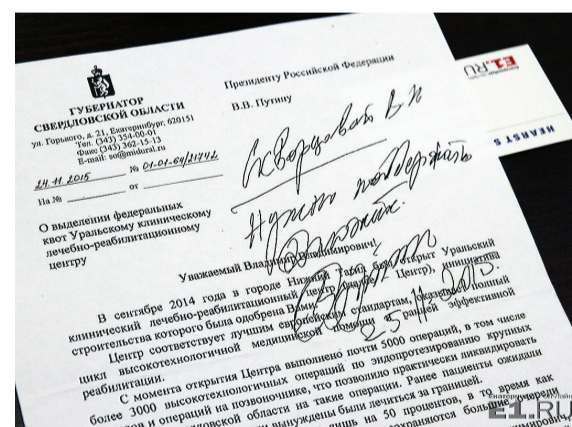 ГУБЕРНАТОР
СВЕРДЛОВСКОЙ ОБЛАСТИ
ул. Горького, д. 21, Екатеринбург, 620151
Тел. (343) 354-00-01
Факс (343) 362-15-13
E-mail: so@midural.ru
24.11.2015 № 01-01-64/21742
На № от
О выделении федеральных
квот Уральскому клиническому
лечебно-реабилитационному
центру
Президенту Российской Федерации
В.В. Путину
Скворцовой В.И
Нужно поддержать
25.11.2015.
Уважаемый Владимир Владимирович!
В сентябре 2014 года в городе Нижний открыт Уральский
клинический лечебно-реабилитационный центр Центр), инициатива
строительства которого была одобрена Вами.
Центр соответствует лучшим европейским стандартам, оказывает полный
цикл высокотехнологичной медицинской помощи ранней эффективной
реабилитации.
С момента открытия Центра выполнено почти 5000 операций, в том числе
более 3000 высокотехнологичных операций по эндопротезированию крупных
и операций на позвоночнике, что позволило практически ликвидировать
области на такие операции. Ранее пациенты ожидали
вынуждены были лечиться за границей.
лишь на 50 процентов, в то время как
сохраняются большие очереди
E1.RU
HEARST S
E1.RU